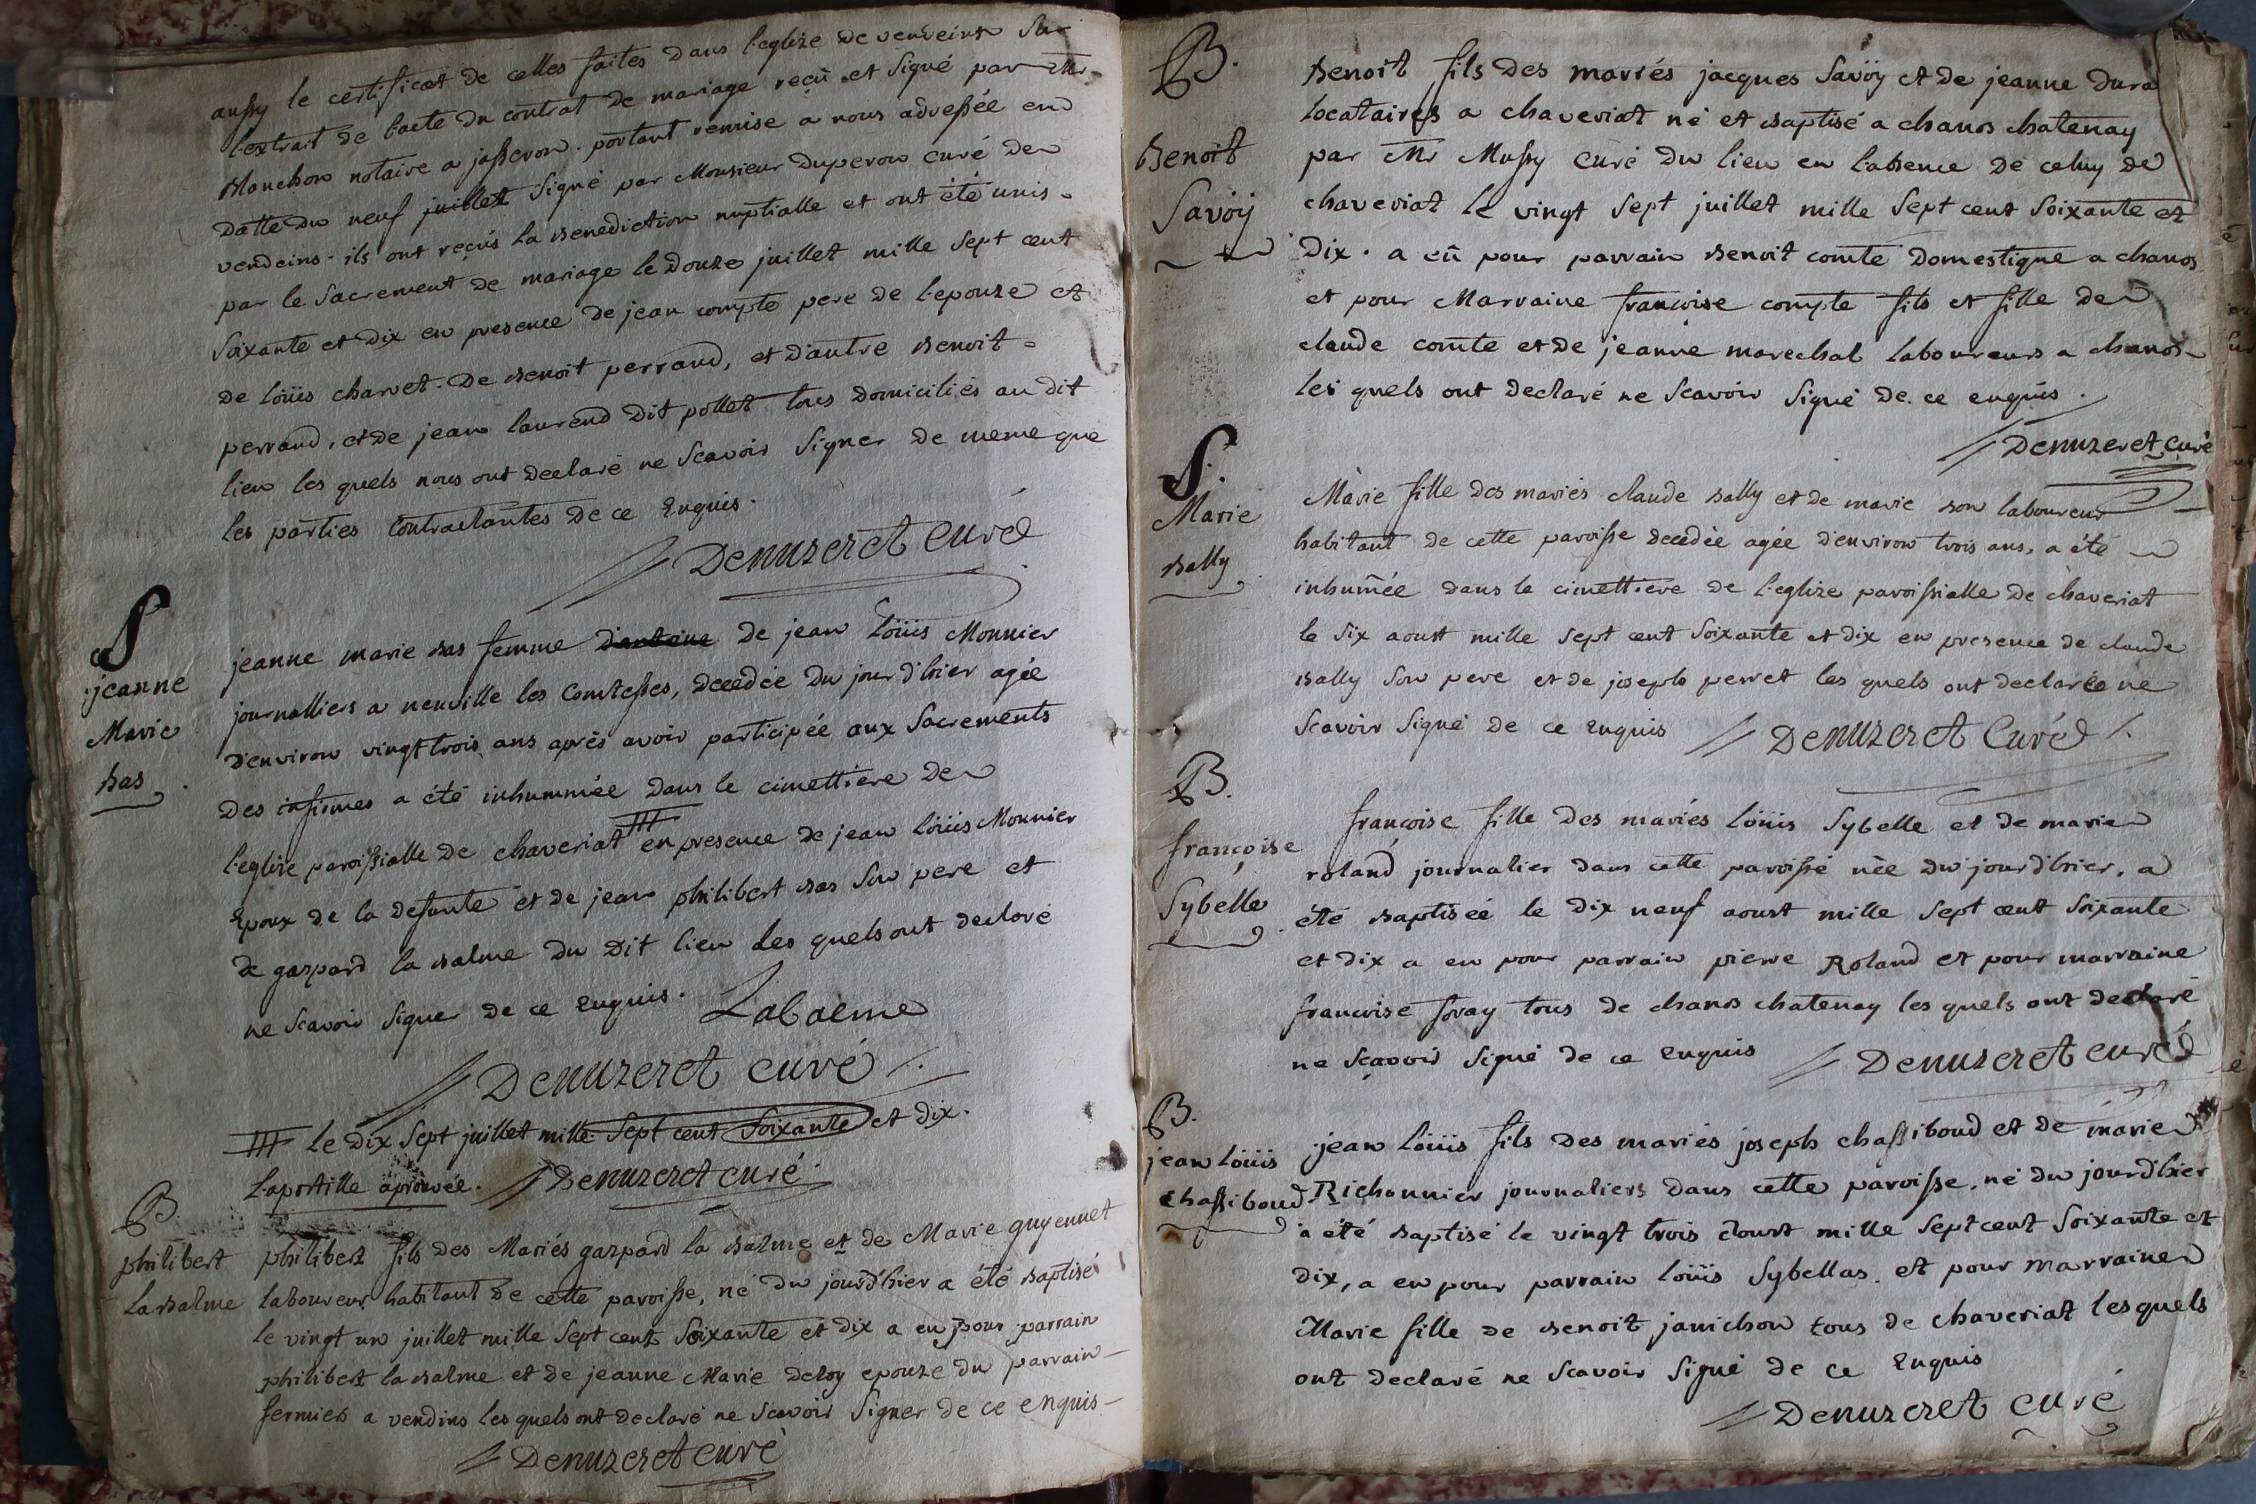 aussy le certificat de celles faites dans l'eglize de vendeins sur
l'extrait de l'acte du contrat de mariage reçü et signé par Mr
blanchon notaire a jasseron. portant remise a nous adressée en
datte du neuf juillet signé par Monsieur duperon curé de
vendeins. ils ont reçüs la benediction nuptialle et ont été unis
par le sacrement de mariage le douze juillet mille sept cent
soixante et dix en presence de jean compte pere de l'epouze et
de loüis charvet. de benoit perraud, et d'autre benoit
perraud, et de jean laurend dit pollet tous domiciliés au dit
lieu les quels nous ont declaré ne scavoir signer de meme que
les parties contractantes de ce enquis.
Denuzeret curé
S
jeanne
Marie
bas
jeanne marie bas femme d'antoine de jean Loüis Monnier
journalliers a neuville les Comtesses, decedée du jour d'hier agée
d'environ vingt trois ans aprés avoir participée aux sacrements
des infirmes a été inhummée dans le cimettiere de
l'eglize paroissialle de chaveriat en presence de jean loüis Monnier
epoux de la defunte et de jean philibert bas son pere et
de gaspard la balme du dit lieu les quels ont declaré
ne scavoir signer de ce enquis. Labalme
Denuzeret curé
le dix sept juillet mille sept cent soixante et dix.
l'apostille aprouvée. Denuzeret curé
B.
philibert
la balme
philibert fils des Mariés gaspard la balme et de Marie guyennet
laboureur habitant de cette paroisse, né du jour d'hier a été baptisé
le vingt un juillet mille sept cent soixante et dix a eu pour parrain
philibert la balme et de jeanne Marie deroy epouze du parrain
fermiers a vendins les quels ont declaré ne scavoir signer de ce enquis
Denuzeret curé
B.
Benoit
Savöy
Benoit fils des mariés jacques Savöy et de jeanne dura
locataires a chaveriat né et baptisé a chanos chatenay
par Mr Mussy curé du lieu en l'absence de celuy de
chaveriat le vingt sept juillet mille sept cent soixante et
dix. a eü pour parrain benoit comte domestique a chanos
et pour Marraine françoise compte fils et fille de
claude comte et de jeanne marechal laboureurs a chanos
les quels ont declaré ne scavoir signé de ce enquis.
Denuzeret curé
S.
Marie
bally
Marie fille des mariés claude bally et de marie bon laboureur
habitant de cette paroisse decedée agée d'environ trois ans, a été
inhumée dans le cimettiere de l'eglize paroissialle de chaveriat
le six aoust mille sept cent soixante et dix en presence de claude
bally son pere et de joseph perret les quels ont declarée ne
scavoir signé de ce enquis Denuzeret Curé
B.
françoise
Sybelle
françoise fille des mariés loüis Sybelle et de marie
roland journalier dans cette paroisse née du jour d'hier, a
été baptisée le dix neuf aoust mille sept cent soixante
et dix a eu pour parrain pierre Roland et pour marraine
francoise foray tous de chanos chatenay les quels ont declaré
ne sçavoir signé de ce enquis Denuzeret curé
B.
jean loüis
chassiboud
jean loüis fils des mariés joseph chassiboud et de marie
Richonnier journaliers dans cette paroisse, né du jour d'hier
a été baptisé le vingt trois aoust mille sept cent soixante et
dix, a eu pour parrain loüis Sybellas. et pour marraine
Marie fille de benoit janichon tous de chaveriat les quels
ont declaré ne scavoir signé de ce enquis
Denuzeret curé